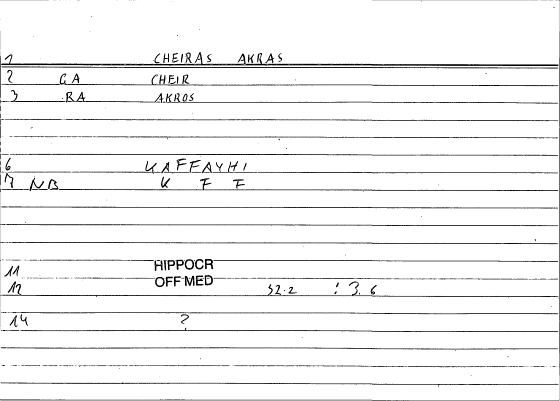 1 CHEIRAS AKRAS
2 GA CHEIR
3 RA AKROS
6 KAFFAYHI
7 NB K F F
11 HIPPOCR
12 OFF MED 32.2 : 3.6
14 ?